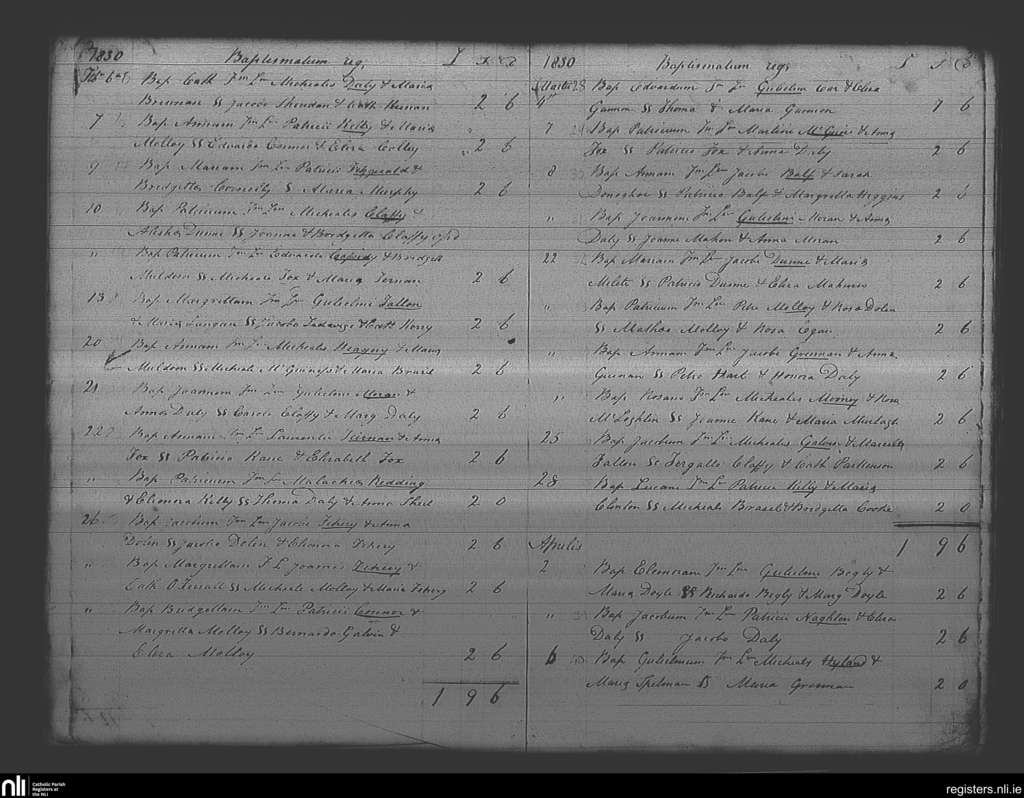 1830 Baptismatum reg. £ s d
Feb 6th Bap Cath Fm Lm Michealis Daly & Maria
Brennan SS Jacobo Sheridan & Cath Kiernan 2 6
7 Bap Annam Fm Lm Patricii Kelly & Maria
Molloy SS Edvardo Connor & Eliza Colley 2 6
9 Bap Mariam Fm Lm Patricii Fitzgerald &
Bridgetta S Maria Murphy 2 6
10 Bap Patricium Fm Lm Michealis Claffy &
Dunne SS Joanne & Bridgetta Claffy
" Bap Patricium Fm Lm Edvardi & Bridgett
Muldoon SS Micheale Fox & Maria 2 6
13 Bap Margrittam Fm Lm Gulielmi Fallon
& Maria SS Jacobo & Cath 2 6
20 Bap Annam Fm Lm Michealis Heavey & Maria
Muldoon SS Micheale & Maria Brasil 2 6
21 Bap Joannem Fm Lm Gulielmi Moran &
Anna Daly SS Carolo Claffy & Marg Daly 2 6
22 Bap Annam Fm Lm Laurentii Kiernan & Anna
Fox SS Patricio Kane & Elizabeth Fox 2 6
" Bap Patricium Fm Lm Malachia Redding
& Elionora Kelly SS Thoma Daly & Anna 2 0
26 Bap Jacobum Fm Lm Jacobi & Anna
Dolen SS Jacobo Dolen & Elionora 2 6
" Bap Margrittam F L Joannis &
Cath SS Micheale Molloy & Maria 2 6
" Bap Bridgettam Fm Lm Patricii Connor &
Margritta Molloy SS Bernardo Galvin &
Eliza Molloy 2 6
1 9 6
1830 Baptismatum regs £ s d
Martii Bap Edvardum Fm Lm Gulielmi & Eliza
4th Gannon SS Thoma & Maria Gannon 7 6
7 Bap Patricium Fm Lm Martini & Anna
Fox SS Patricio Fox & Anna Daly 2 6
8 Bap Annam Fm Lm Jacobi Balf & Sarah
Donoghoe SS Patricio Balf & Margritta Higgins 2 6
" Bap Joannem Fm Lm Gulielmi Moran & Anna
Daly SS Joanne Mahon & Anna Moran 2 6
22 Bap Mariam Fm Lm Jacobi Dunne & Maria
SS Patricio Dunne & Eliza 2 6
" Bap Patricium Fm Lm Petri Molloy & Rosa Dolen
SS Mathao Molloy & Rosa Egan 2 6
" Bap Annam Fm Lm Jacobi Grennan & Anna
SS Petro & Honora Daly 2 6
" Bap Rosam Fm Lm Michealis Mooney & Rosa
McLoghlin SS Joanne Kane & Maria Murtagh 2 6
25 Bap Jacobum Fm Lm Michealis Galvin & Marcella
Fallon SS Fergallo Claffy & Cath Parkinson 2 6
28 Bap Lucam Fm Lm Patricii & Maria
Clinton SS Micheale Brasil & Bridgetta Cooke 2 0
1 9 6
Aprilis
2 Bap Elionoram Fm Lm Gulielmi Begly &
Maria Doyle SS Richardo Begly & Marg Doyle 2 6
" Bap Jacobum Fm Lm Patricii Naghten & Eliza
Daly SS Jacobo Daly 2 6
6 Bap Gulielmum Fm Lm Michealis Hyland &
Maria Spelman SS Maria Grennan 2 0
nli
Catholic Parish
Registers at
the NLI
registers.nli.ie